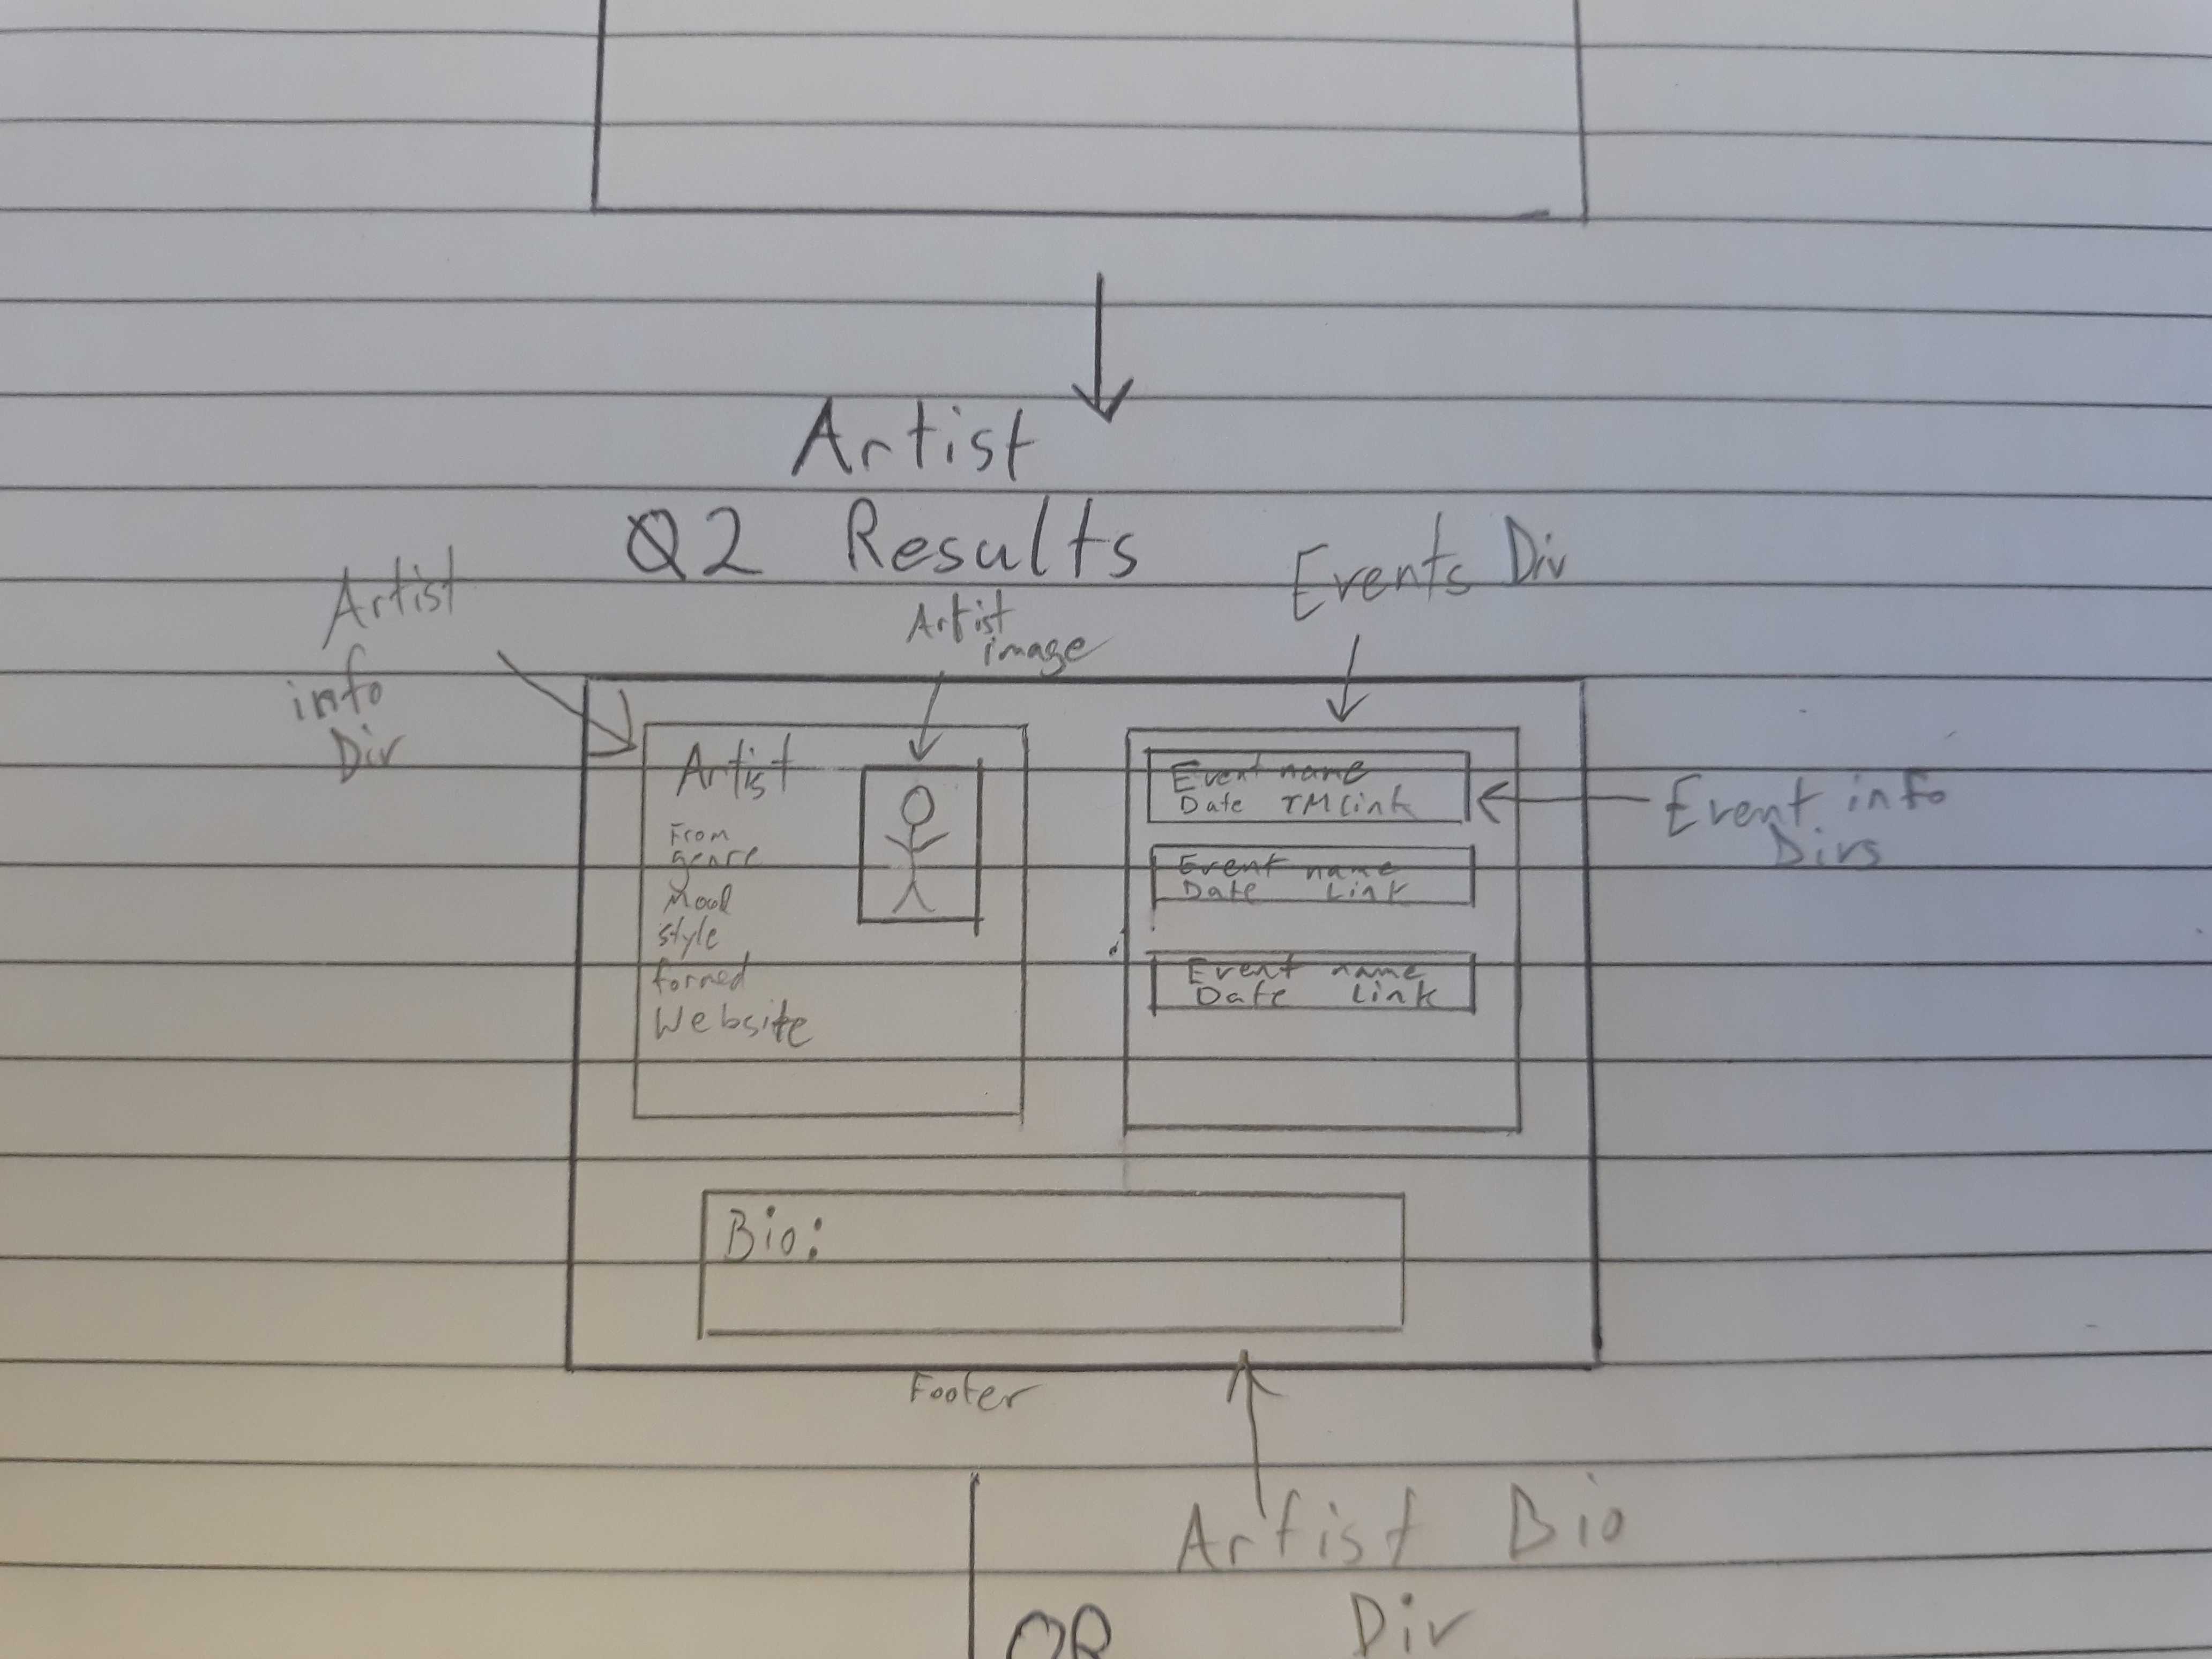 Artist
Q2 Results
Artist
info
Div
Artist
image
Events Div
Artist
From
genre
Mood
style
formed
Website
Event name
Date TM Link
Event name
Date Link
Event name
Date Link
Event info
Divs
Bio:
Footer
Artist Bio
Div
OR